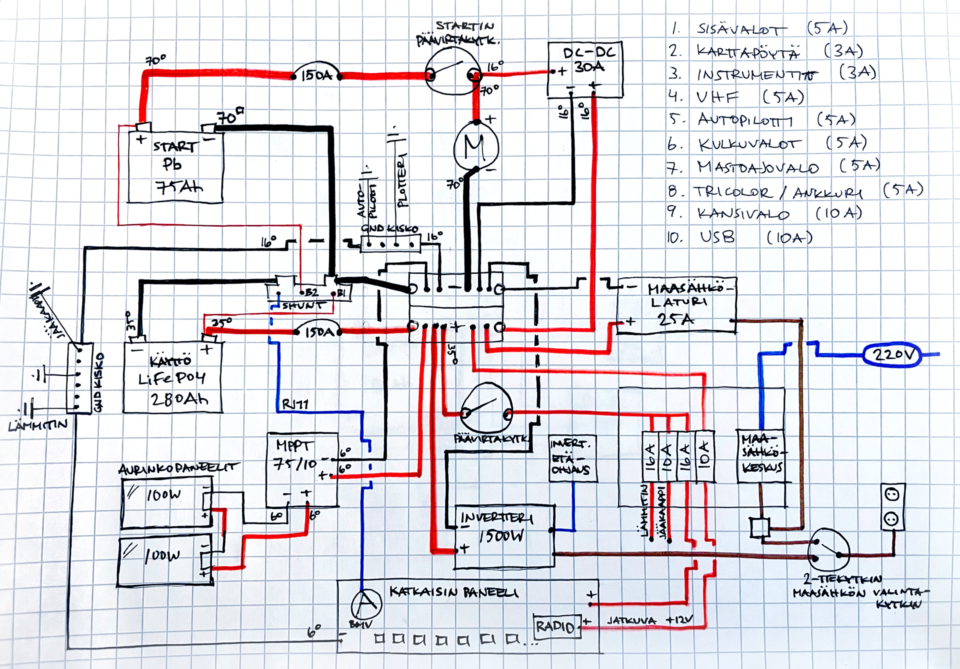 STARTIN
PÄÄVIRTAKYTK.
70°
150A
16°
70°
DC-DC
30A
+
-
+
16°
16°
1. SISÄVALOT (5A)
2. KARTTAPÖYTÄ (3A)
3. INSTRUMENTIT (3A)
4. VHF (5A)
5. AUTOPILOTTI (5A)
6. KULKUVALOT (5A)
7. MASTOAJOVALO (5A)
8. TRICOLOR / ANKKURI (5A)
9. KANSIVALO (10A)
10. USB (10A)
+
-
70°
START
Pb
75Ah
+
M
-
70°
AUTO-
PILOTTI
PLOTTERI
GND KISKO
16°
16°
B2
B1
SHUNT
-
+
MAASÄHKÖ-
LATURI
25A
-
+
35°
35°
150A
35°
-
+
KÄYTTÖ
LiFePO4
280Ah
JÄÄKAAPPI
GND KISKO
LÄMMITIN
RJ11
220V
PÄÄVIRTAKYTK.
INVERT.
ETÄ-
OHJAUS
16A
10A
16A
10A
MAA-
SÄHKÖ-
KESKUS
LÄMMITIN
JÄÄKAAPPI
MPPT
75/10
-
+
6°
6°
-
+
6°
6°
AURINKOPANEELIT
100W
-
+
100W
-
+
INVERTTERI
1500W
-
+
2-TIEKYTKIN
MAASÄHKÖN VALINTA-
KYTKIN
KATKAISIN PANEELI
A
BMV
6°
-
...
RADIO
+
+
JATKUVA +12V